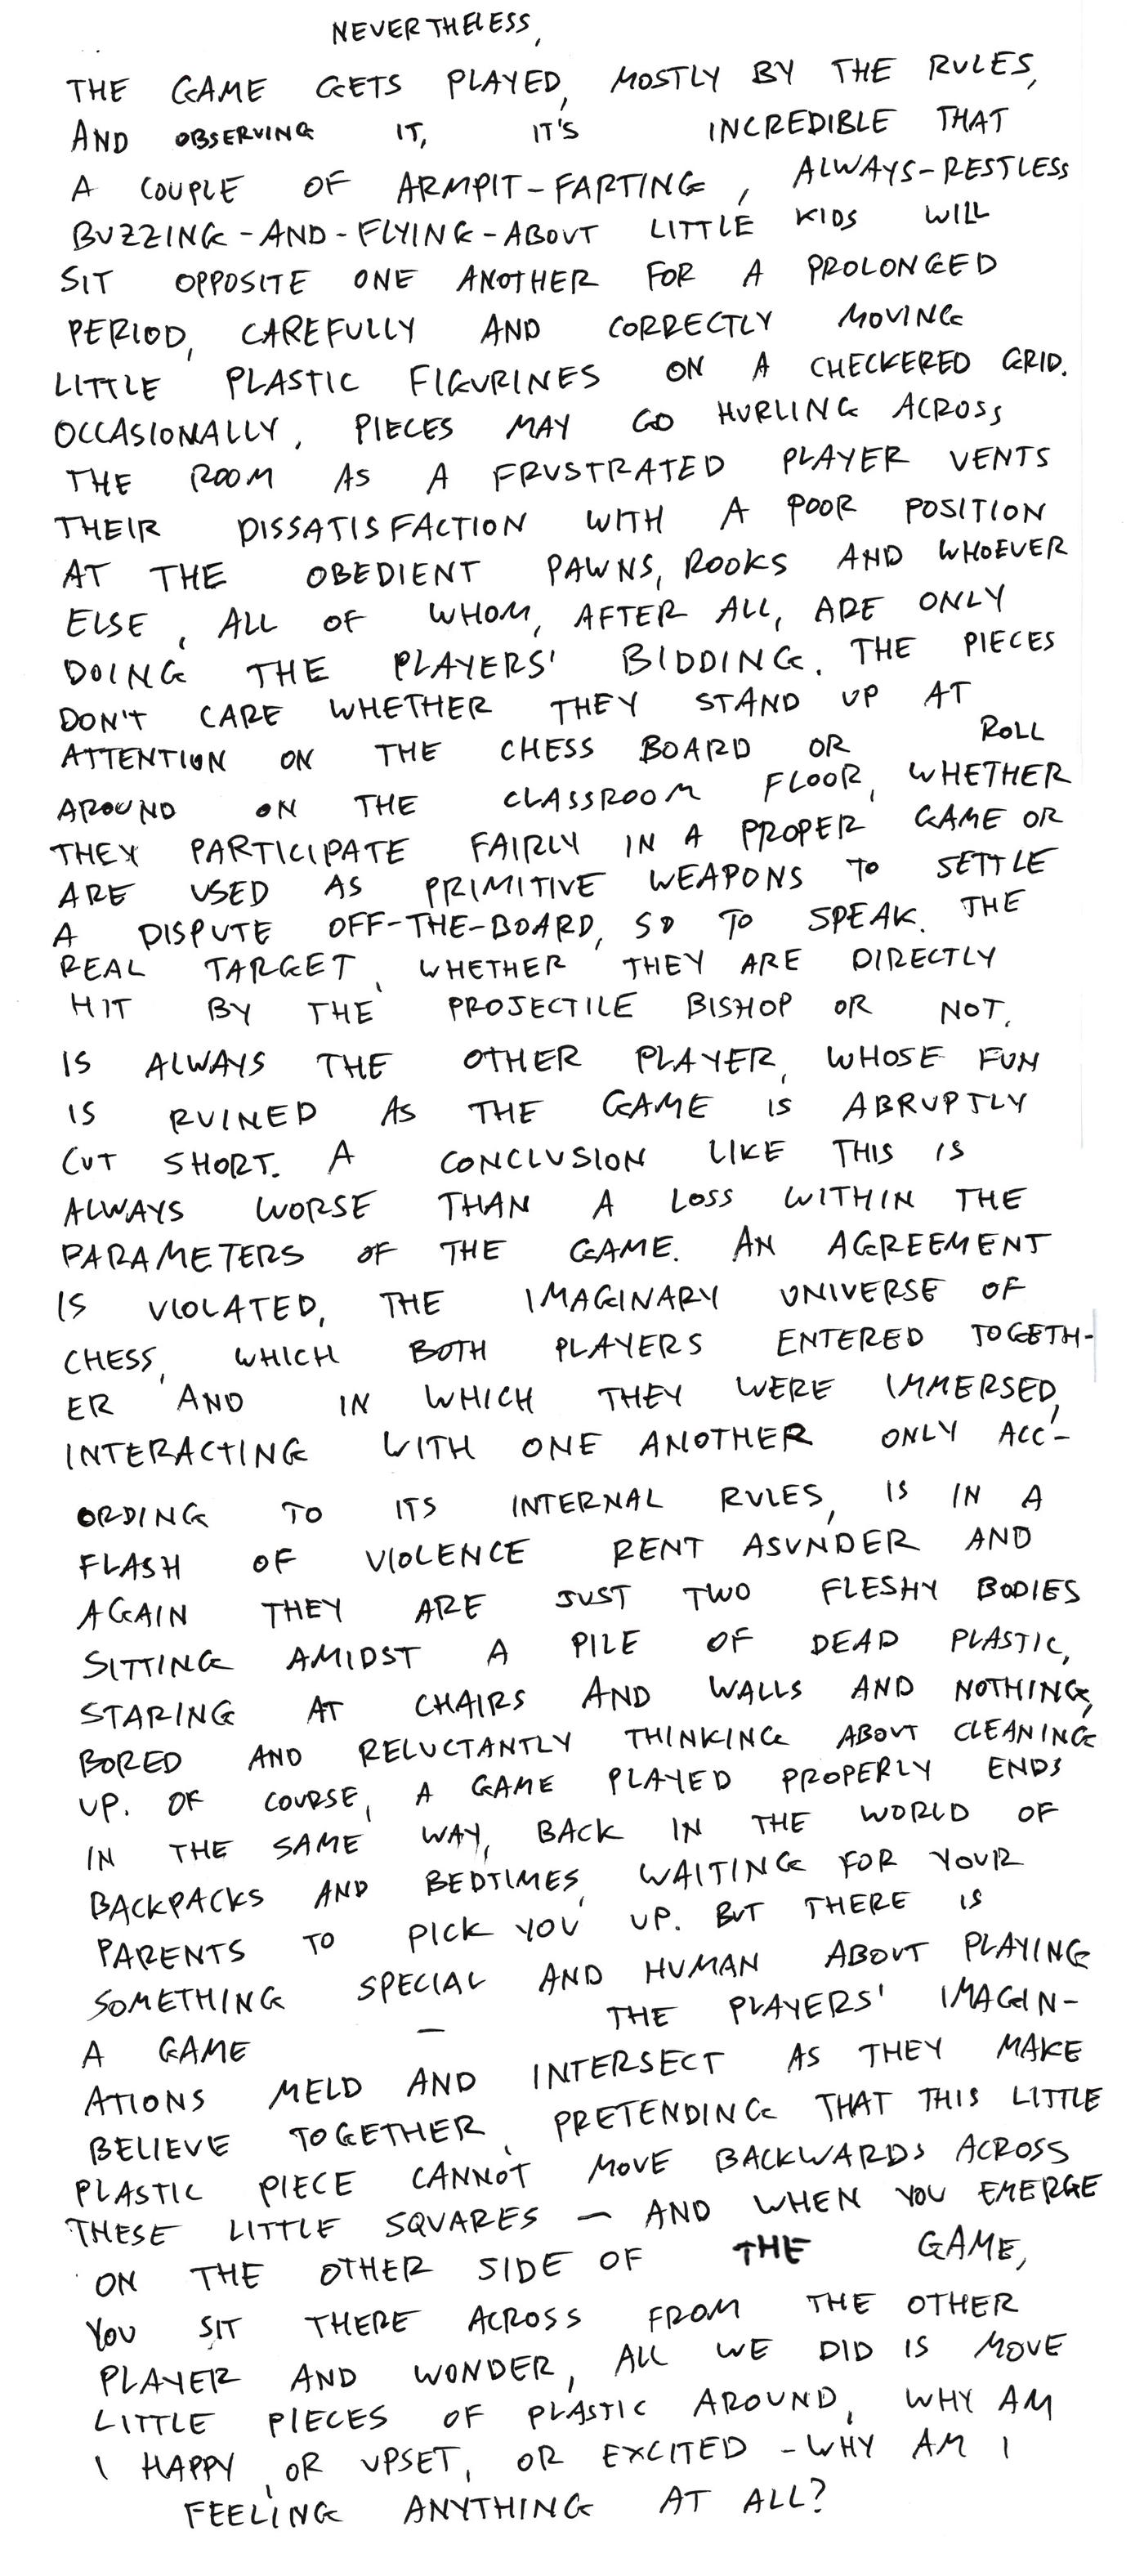 NEVERTHELESS,
THE GAME GETS PLAYED, MOSTLY BY THE RULES,
AND OBSERVING IT, IT'S INCREDIBLE THAT
A COUPLE OF ARMPIT-FARTING, ALWAYS-RESTLESS
BUZZING-AND-FLYING-ABOUT LITTLE KIDS WILL
SIT OPPOSITE ONE ANOTHER FOR A PROLONGED
PERIOD, CAREFULLY AND CORRECTLY MOVING
LITTLE PLASTIC FIGURINES ON A CHECKERED GRID.
OCCASIONALLY, PIECES MAY GO HURLING ACROSS
THE ROOM AS A FRUSTRATED PLAYER VENTS
THEIR DISSATISFACTION WITH A POOR POSITION
AT THE OBEDIENT PAWNS, ROOKS AND WHOEVER
ELSE, ALL OF WHOM, AFTER ALL, ARE ONLY
DOING THE PLAYERS' BIDDING. THE PIECES
DON'T CARE WHETHER THEY STAND UP AT
ATTENTION ON THE CHESS BOARD OR ROLL
AROUND ON THE CLASSROOM FLOOR, WHETHER
THEY PARTICIPATE FAIRLY IN A PROPER GAME OR
ARE USED AS PRIMITIVE WEAPONS TO SETTLE
A DISPUTE OFF-THE-BOARD, SO TO SPEAK. THE
REAL TARGET, WHETHER THEY ARE DIRECTLY
HIT BY THE PROJECTILE BISHOP OR NOT,
IS ALWAYS THE OTHER PLAYER, WHOSE FUN
IS RUINED AS THE GAME IS ABRUPTLY
CUT SHORT. A CONCLUSION LIKE THIS IS
ALWAYS WORSE THAN A LOSS WITHIN THE
PARAMETERS OF THE GAME. AN AGREEMENT
IS VIOLATED, THE IMAGINARY UNIVERSE OF
CHESS, WHICH BOTH PLAYERS ENTERED TOGETH-
ER AND IN WHICH THEY WERE IMMERSED,
INTERACTING WITH ONE ANOTHER ONLY ACC-
ORDING TO ITS INTERNAL RULES, IS IN A
FLASH OF VIOLENCE RENT ASUNDER AND
AGAIN THEY ARE JUST TWO FLESHY BODIES
SITTING AMIDST A PILE OF DEAD PLASTIC,
STARING AT CHAIRS AND WALLS AND NOTHING,
BORED AND RELUCTANTLY THINKING ABOUT CLEANING
UP. OF COURSE, A GAME PLAYED PROPERLY ENDS
IN THE SAME WAY, BACK IN THE WORLD OF
BACKPACKS AND BEDTIMES, WAITING FOR YOUR
PARENTS TO PICK YOU UP. BUT THERE IS
SOMETHING SPECIAL AND HUMAN ABOUT PLAYING
A GAME — THE PLAYERS' IMAGIN-
ATIONS MELD AND INTERSECT AS THEY MAKE
BELIEVE TOGETHER, PRETENDING THAT THIS LITTLE
PLASTIC PIECE CANNOT MOVE BACKWARDS ACROSS
THESE LITTLE SQUARES — AND WHEN YOU EMERGE
ON THE OTHER SIDE OF THE GAME,
YOU SIT THERE ACROSS FROM THE OTHER
PLAYER AND WONDER, ALL WE DID IS MOVE
LITTLE PIECES OF PLASTIC AROUND, WHY AM
I HAPPY, OR UPSET, OR EXCITED - WHY AM I
FEELING ANYTHING AT ALL?